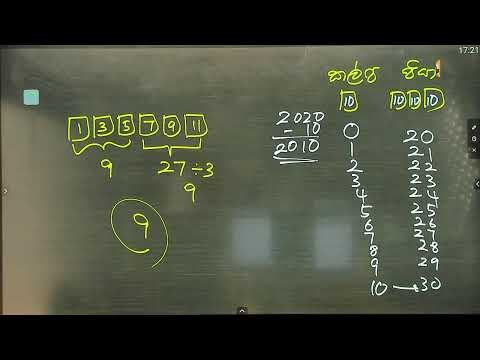 17:21
කල්ප පියා
10 10 10 10
1 3 5 7 9 11
9 27÷3
9
9
2020
- 10
2010
0 20
1 21
2 22
3 23
4 24
5 25
6 26
7 27
8 28
9 29
10 → 30